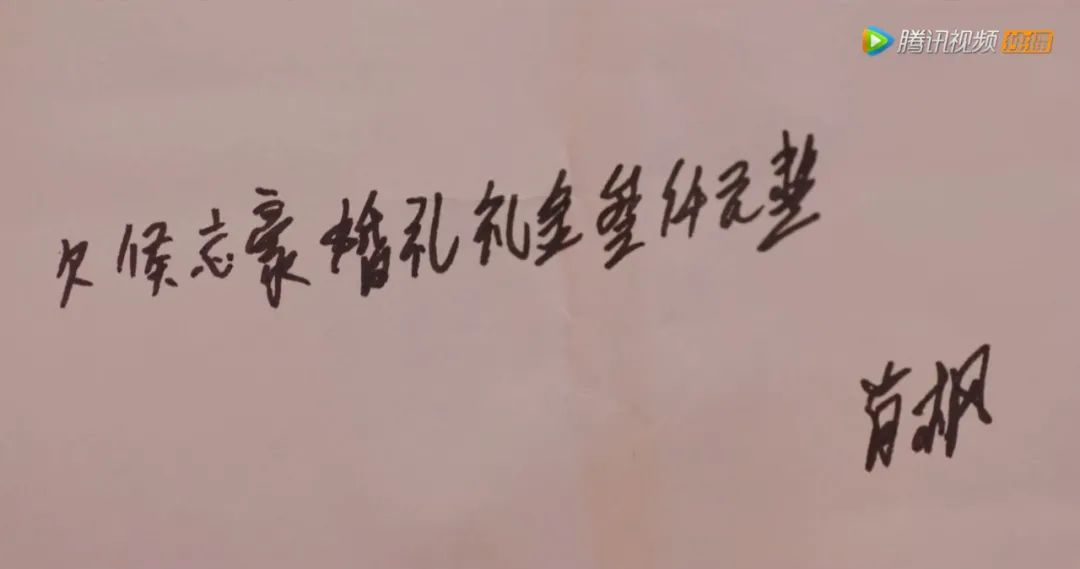 腾讯视频 独播
欠侯志豪婚礼礼金叁仟元整
肖枫